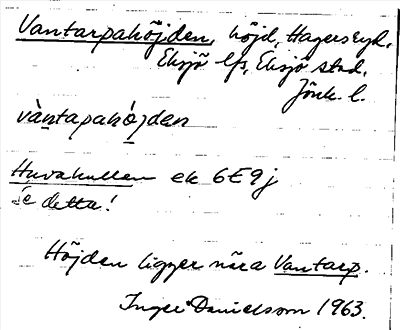 Vantarpahöjden, höjd, Hagerstyk.
Eksjö lfs, Eksjö stad,
Jönk. l.
vàntapahòjden
Huvakullen ek 6E9j
se detta!
Höjden ligger nära Vantarp.
Inger Danielsson 1963.